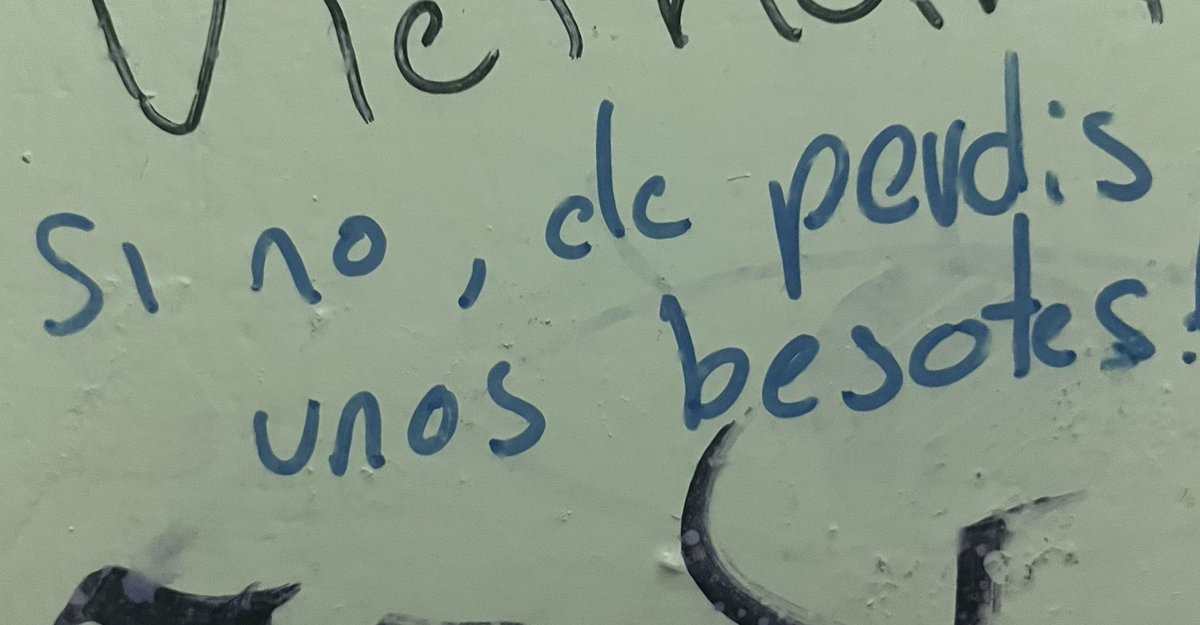 si no, de perdis
unos besotes!